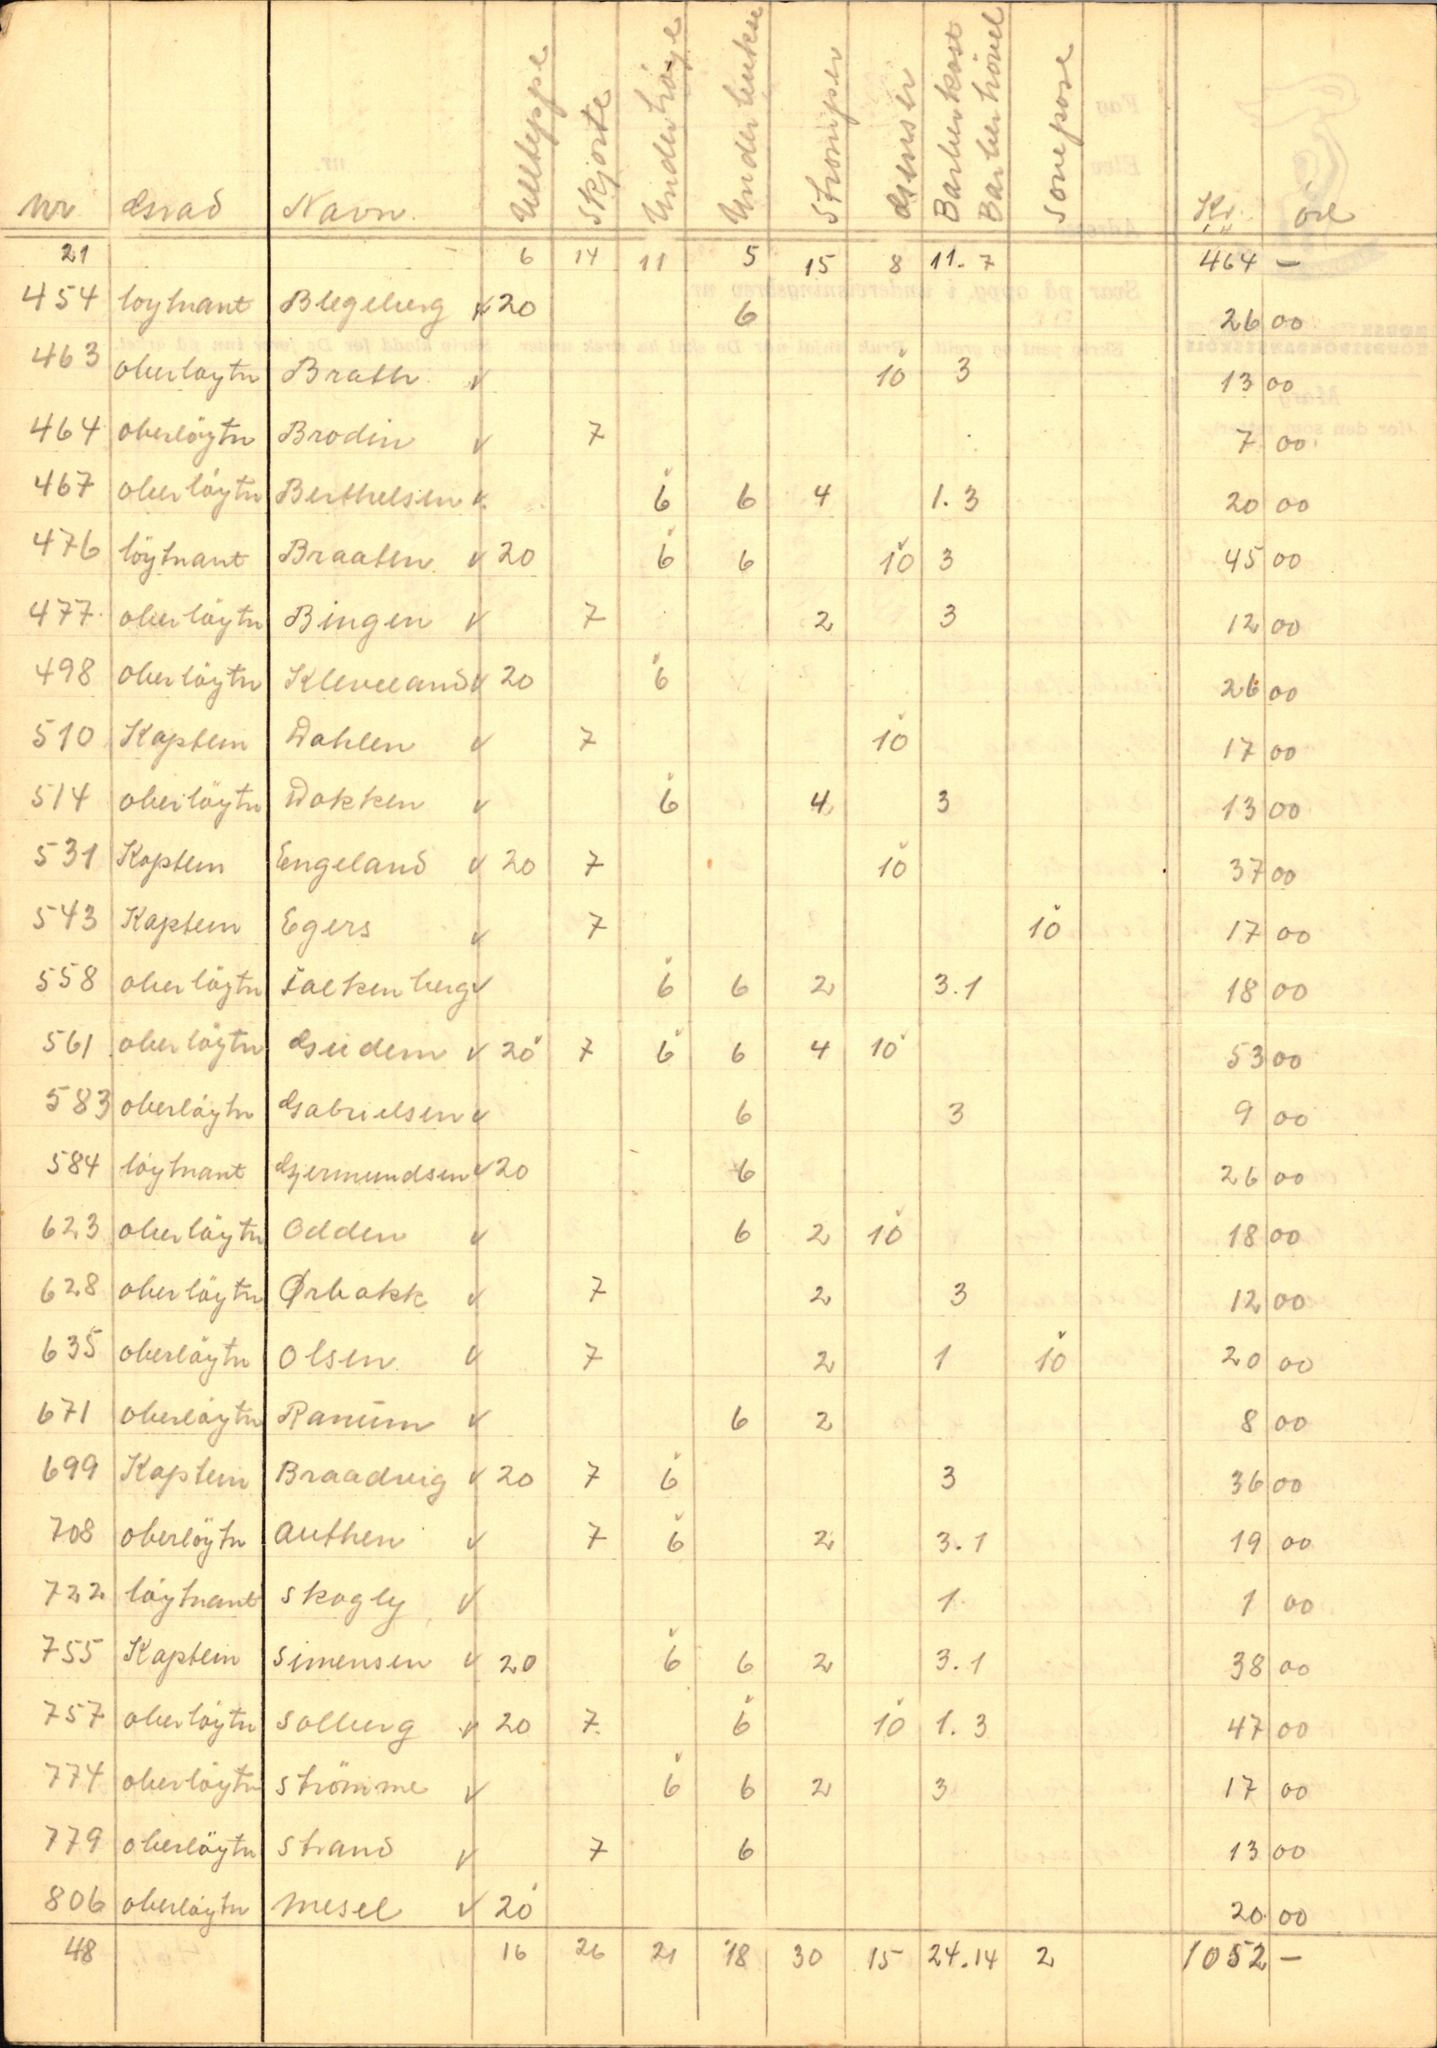 Nr Grad Navn Ullteppe Skjorte Undertröye Underbukse Strömper Genser Barberkost Barberhövel Sovepose Kr. öre
21 6 14 11 5 15 8 11. 7 464 —
454 löytnant Blegeberg v 20 6 26 00
463 oberlöytn Brath v 10 3 13 00
464 oberlöytn Brodin v 7 7 00
467 oberlöytn Berthelsen v 6 6 4 1. 3 20 00
476 löytnant Braaten v 20 6 6 10 3 45 00
477 oberlöytn Bingen v 7 2 3 12 00
498 oberlöytn Kleveland v 20 6 26 00
510 Kaptein Dahlen v 7 10 17 00
514 oberlöytn Dokken v 6 4 3 13 00
531 Kaptein Engeland v 20 7 10 37 00
543 Kaptein Egers v 7 10 17 00
558 oberlöytn Falkenberg v 6 6 2 3.1 18 00
561 oberlöytn Gudem v 20 7 6 6 4 10 53 00
583 oberlöytn Gabrielsen v 6 3 9 00
584 löytnant Gjermundsen v 20 6 26 00
623 oberlöytn Odden v 6 2 10 18 00
628 oberlöytn Ørbakk v 7 2 3 12 00
635 oberlöytn Olsen v 7 2 1 10 20 00
671 oberlöytn Ranum v 6 2 8 00
699 Kaptein Braadvig v 20 7 6 3 36 00
708 oberlöytn Authen v 7 6 2 3.1 19 00
722 löytnant Skogly v 1 1 00
755 Kaptein Simensen v 20 6 6 2 3.1 38 00
757 oberlöytn Solberg v 20 7 6 10 1. 3 47 00
774 oberlöytn Strömme v 6 6 2 3 17 00
779 oberlöytn Strand v 7 6 13 00
806 oberlöytn Mesel v 20 20 00
48 16 26 21 18 30 15 24.14 2 1052 —